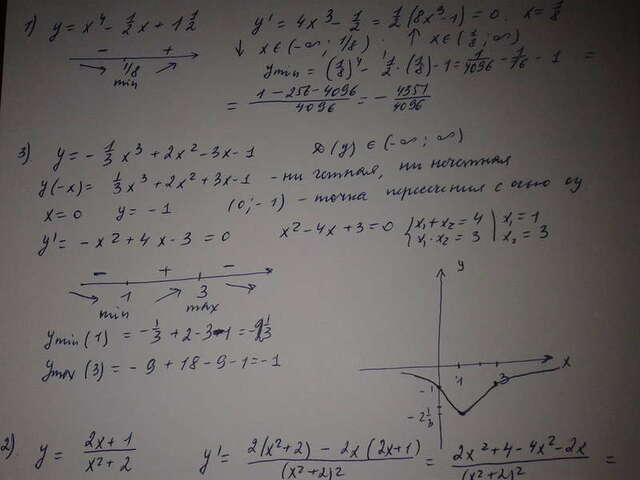 1) y = x⁴ - 1/2 x + 1 1/2    y' = 4x³ - 1/2 = 1/2 (8x³ - 1) = 0. x = 1/8
- +    ↓ x ∈ (-∞; 1/8). ↑ x ∈ (1/8; ∞)
1/8
min
y min = (1/8)⁴ - 1/2 · (1/8) - 1 = 1/4096 - 1/16 - 1 =
= (1 - 256 - 4096)/4096 = - 4351/4096
3) y = - 1/3 x³ + 2x² - 3x - 1    D(y) ∈ (-∞; ∞)
y(-x) = 1/3 x³ + 2x² + 3x - 1 - ни четная, ни нечетная
x = 0    y = -1    (0; -1) - точка пересечения с осью oy
y' = - x² + 4x - 3 = 0    x² - 4x + 3 = 0    { x₁ + x₂ = 4 | x₁ = 1
x₁ · x₂ = 3 | x₂ = 3
- + -
1 3
min max
y min (1) = - 1/3 + 2 - 3 - 1 = -2 1/3
y max (3) = - 9 + 18 - 9 - 1 = -1
y
x
1 3
-1
-2 1/3
2) y = (2x + 1)/(x² + 2)    y' = (2(x² + 2) - 2x(2x + 1))/(x² + 2)² = (2x² + 4 - 4x² - 2x)/(x² + 2)² =